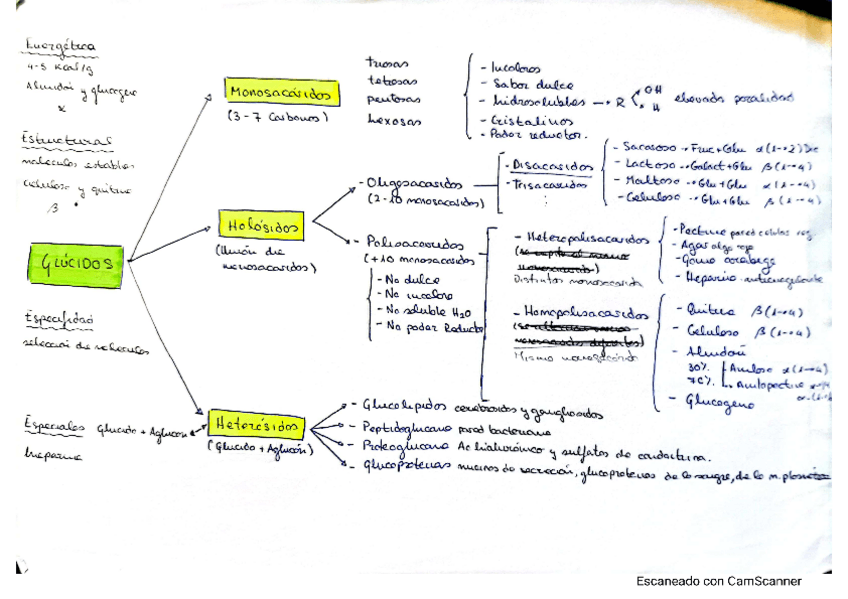 Energética
4-5 Kcal/g
Almidón y glucógeno
α
Estructural
moléculas estables
celulosa y quitina
β
GLÚCIDOS
Especificidad
selección de moléculas
Especiales Glucido + Aglucón
heparina
Monosacáridos
(3-7 Carbonos)
triosas
tetrosas
pentosas
hexosas
- Incoloros
- Sabor dulce
- hidrosolubles → R OH H elevada polaridad
- Cristalinos
- Poder reductor.
Holósidos
(Unión de
monosacáridos)
- Oligosacáridos
(2-10 monosacáridos)
- Disacáridos
- Trisacáridos
- Sacarosa → Fruc + Glu α(1→2)
- Lactosa → Galact + Glu β(1→4)
- Maltosa → Glu + Glu α(1→4)
- Celulosa → Glu + Glu β(1→4)
- Polisacáridos
(+10 monosacáridos
- No dulce
- No incoloro
- No soluble H2O
- No poder Reductor
- Heteropolisacáridos
Distintos monosacárido
- Pectina pared células veg.
- Agar alga roja
- Goma arábega
- Heparina anticoagulante
- Homopolisacáridos
Mismo monosacárido
- Quitina β(1→4)
- Celulosa β(1→4)
- Almidón
30% Amilosa α(1→4)
70% Amilopectina
- Glucógeno
Heterósidos
(Glucido + Aglucón)
- Glucolípidos cerebrosidos y gangliosidos
- Peptidoglucano pared bacteriana
- Proteoglucano Ac hialurónico y sulfatos de condroitina.
- Glucoproteinas mucinas de secreción, glucoproteinas de la sangre, de la m. plasmática
Escaneado con CamScanner